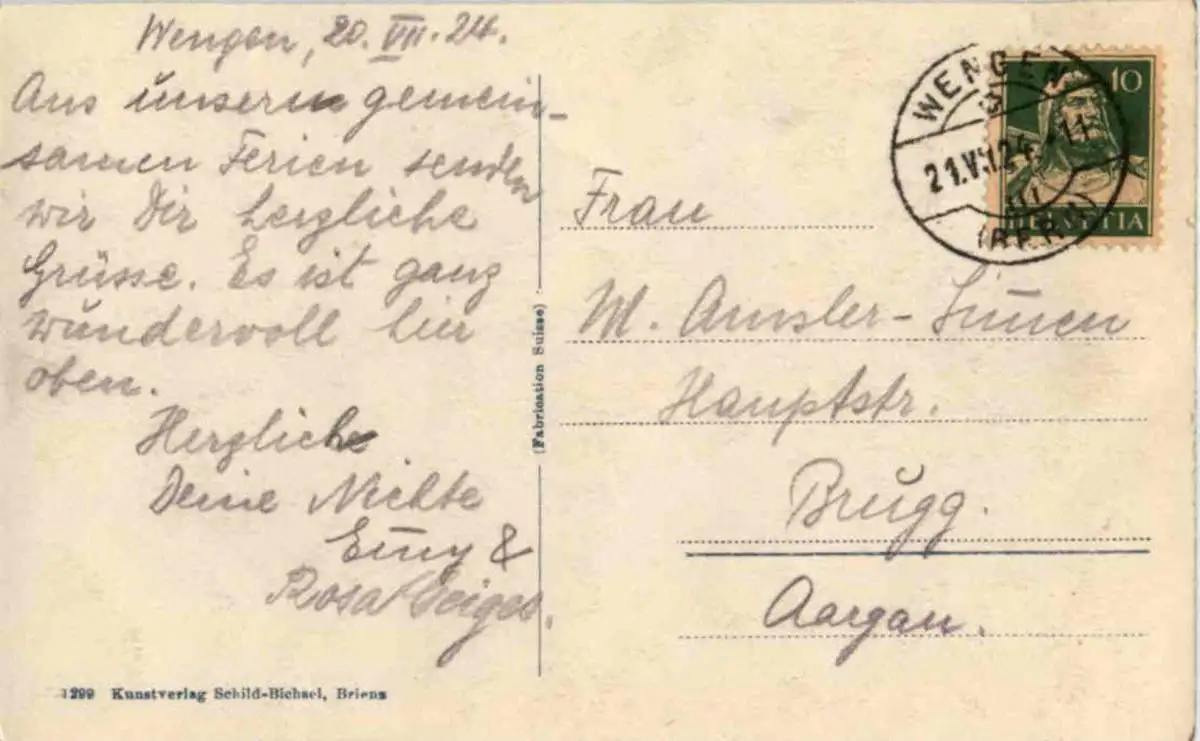 Wengen, 20. VII. 24.
Aus unsern gemein-
samen Ferien senden
wir Dir herzliche
Grüsse. Es ist ganz
wundervoll hier
oben.
Herzlich
Deine Nichte
Emy &
Rosa Geiger.
1299 Kunstverlag Schild-Bichsel, Brienz
(Fabrication Suisse)
WENGEN
21.VII.24. 11
(BERN)
10
HELVETIA
Frau
M. Amsler-
Hauptstr.
Brugg.
Aargau.